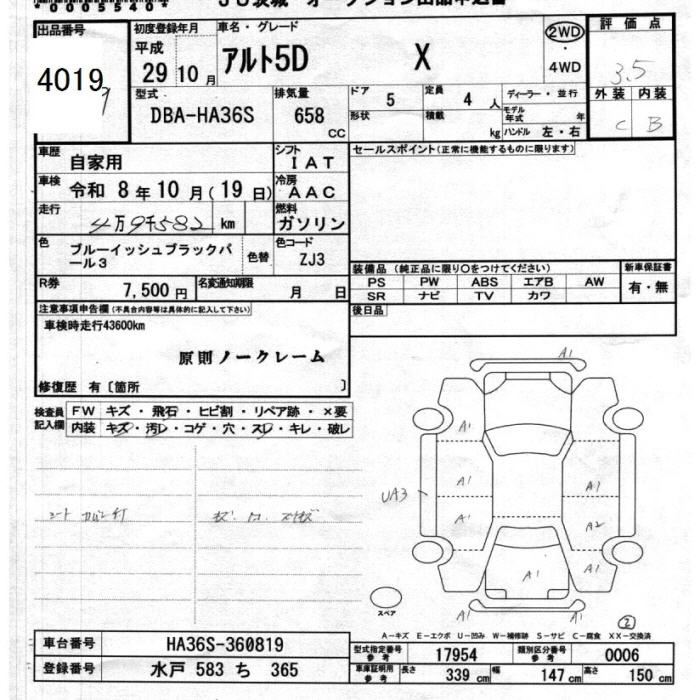 *0005540*
JU茨城 オークション出品申込書
出品番号
4019
初度登録年月
平成
29年10月
車名・グレード
アルト5D X
2WD
・
4WD
評価点
3.5
型式
DBA-HA36S
排気量
658
CC
ドア
5
定員
4人
形状
積載
kg
ディーラー・並行
モデル年式 年
ハンドル 左・右
外装 内装
C B
車歴
自家用
シフト
IAT
セールスポイント(正常に機能するものに限ります)
車検
令和 8年10月(19日)
冷房
AAC
走行
4万9千582 km
燃料
ガソリン
色
ブルーイッシュブラックパ
ール3
色替
色コード
ZJ3
装備品(純正品に限り○をつけてください)
新車保証書
PS PW ABS エアB AW
有・無
SR ナビ TV カワ
R券
7,500円
名変通知期限
月 日
後日品
注意事項申告欄(不具合内容等は具体的に記入して下さい)
車検時走行43600km
原則ノークレーム
修復歴 有〔箇所 〕
検査員
記入欄
FW キズ・飛石・ヒビ割・リペア跡・×要
内装 キズ・汚レ・コゲ・穴・スレ・キレ・破レ
A1
A1
A1
A1
UA3
A1
A1
A2
A1
A1
A1
シート
スペア
②
A-キズ E-エクボ U-凹み W-補修跡 S-サビ C-腐食 XX-交換済
車台番号
HA36S-360819
型式指定番号
参考
17954
類別区分番号
参考
0006
登録番号
水戸 583 ち 365
車庫証明用
参考
長さ
339 cm
幅
147 cm
高さ
150 cm